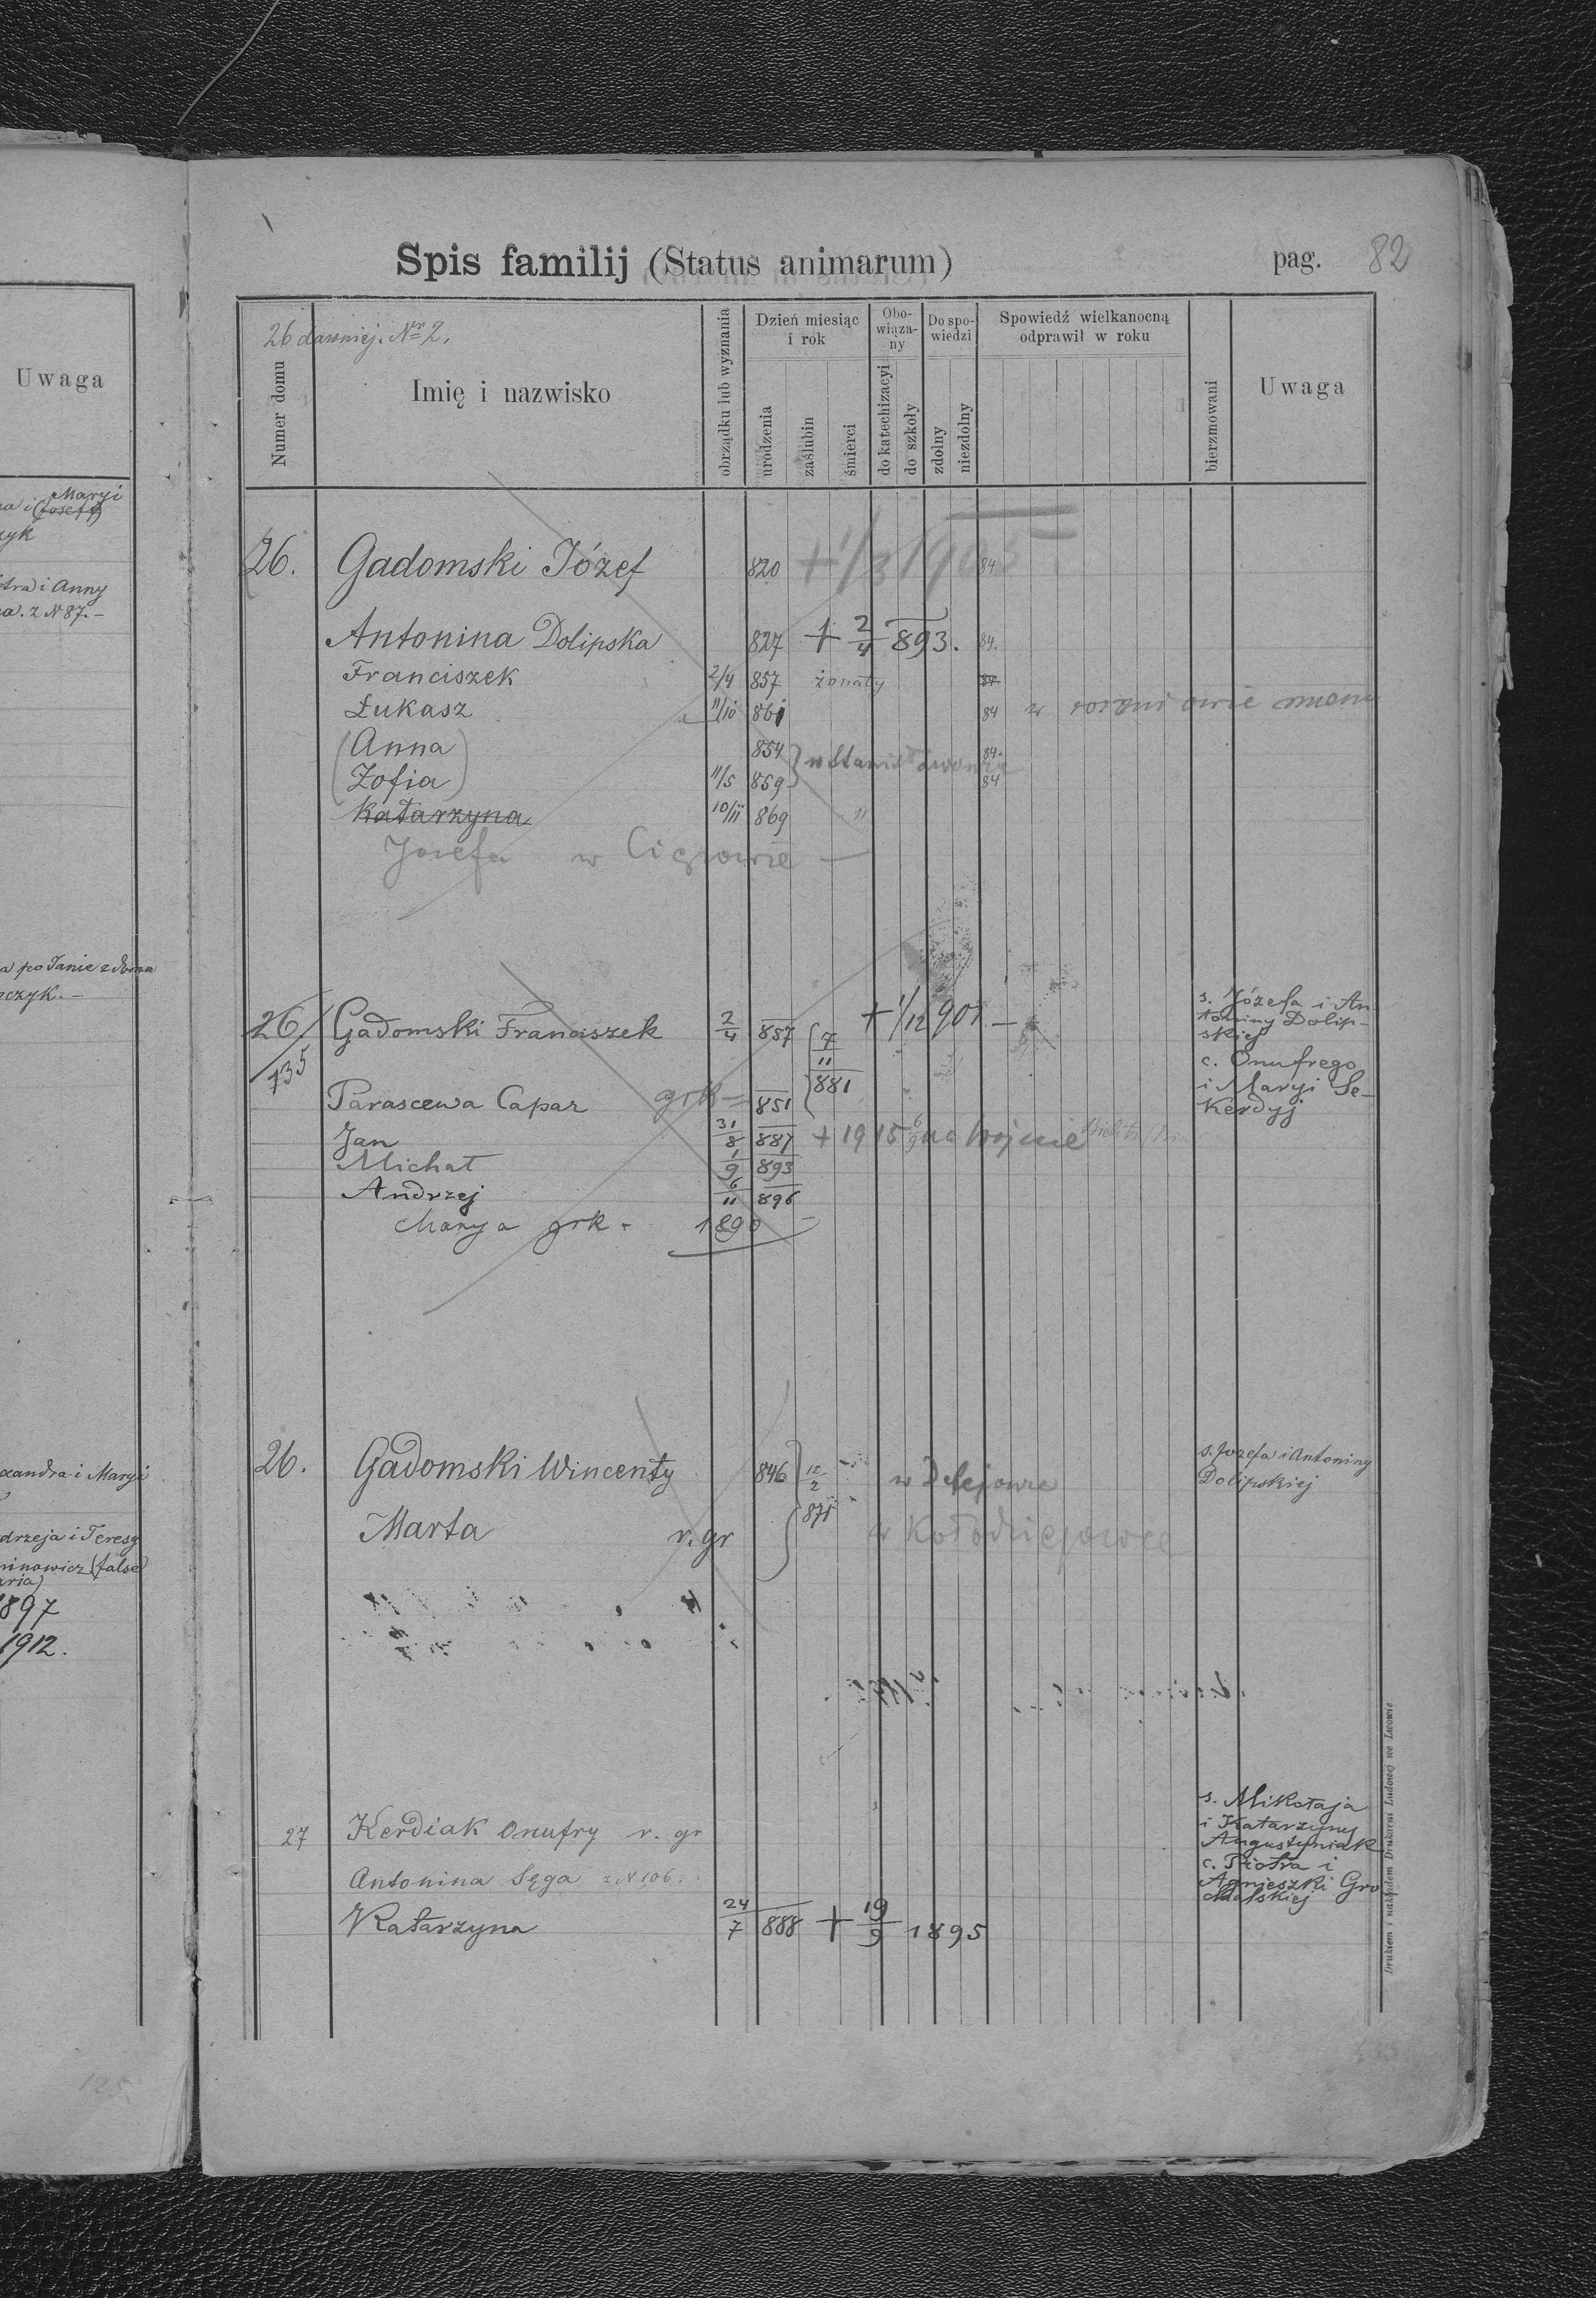 Uwaga
Maryi
a i (Josefy)
czyk
stra i Anny
a. z N 87. –
a po Janie z domu
czyk. –
xandra i Maryi
drzeja i Teresy
ninowicz (false
aria)
1897
1912.
125
Spis familij (Status animarum)
pag. 82
26 dawniej. Nr 2.
Numer domu
Imię i nazwisko
obrządku lub wyznania
Dzień miesiąc i rok
urodzenia
zaślubin
śmierci
Obo-wiąza-ny
do katechizacyi
do szkoły
Do spo-wiedzi
zdolny
niezdolny
Spowiedź wielkanocną odprawił w roku
bierzmowani
Uwaga
26. Gadomski Józef 820 + 1/3 1905 84
Antonina Dolipska 827 + 2/4 893. 84.
Franciszek 2/4 857 żonaty 84.
Łukasz 11/10 861 84 w
(Anna) 854 } w Stanisławowie 84.
(Zofia) 11/5 859 84
Katarzyna 10/11 869 "
Josefa w Cięzowie –
26/135 Gadomski Franciszek 2/4 857 { 7/11 881 + 1/12 901. – s. Józefa i An-
toniny Dolip-
skiej
Parascewa Capar grk = 851 c. Onufrego
i Maryi Se-
kerdyj
Jan 31/8 887 + 1915 6/9 na wojnie
Michał 1/9 893
Andrzej 6/11 896
Marya grk. 1890
26. Gadomski Wincenty 846 } 15/2 871 w Delejowie s. Jozefa i Antoniny
Dolipskiej
Marta r. gr w Kołodziejowce
27 Kerdiak Onufry r. gr s. Mikołaja
i Katarzyny
Augustyniak
Antonina Sęga z N 106. c. Piotra i
Agnieszki Gro
chalskiej
Katarzyna 24/7 888 + 19/9 1895
Drukiem i nakładem Drukarni Ludowej we Lwowie